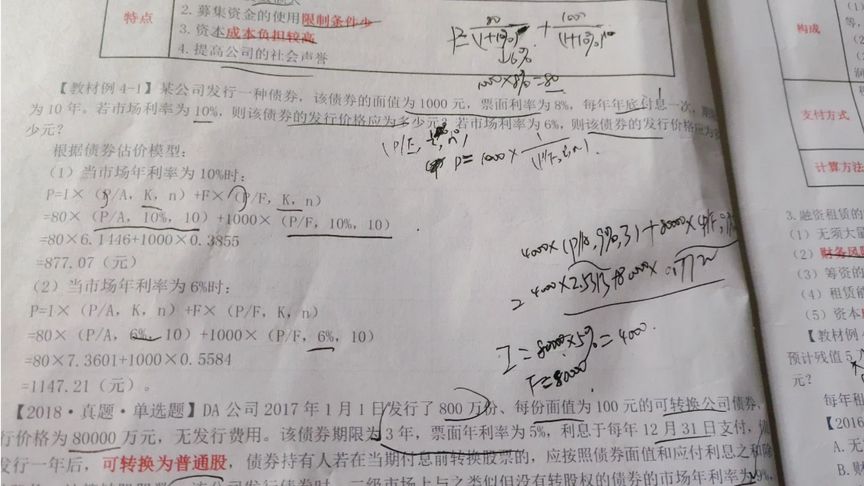 特点
2. 募集资金的使用限制条件少
3. 资本成本负担较高
4. 提高公司的社会声誉
1000×8%=80
【教材例 4-1】某公司发行一种债券，该债券的面值为 1000 元，票面利率为 8%，每年年底付息一次，期
为 10 年。若市场利率为 10%，则该债券的发行价格应为多少元？若市场利率为 6%，则该债券的发行价格应为
少元？
根据债券估价模型：
（1）当市场年利率为 10%时：
P=I×（P/A，K，n）+F×（P/F，K，n）
=80×（P/A，10%，10）+1000×（P/F，10%，10）
=80×6.1446+1000×0.3855
=877.07（元）
（2）当市场年利率为 6%时：
P=I×（P/A，K，n）+F×（P/F，K，n）
=80×（P/A，6%，10）+1000×（P/F，6%，10）
=80×7.3601+1000×0.5584
=1147.21（元）。
4000×(P/A,9%,3)+80000×(P/F,9%
I=80000×5%=4000.
F=80000.
【2018·真题·单选题】DA 公司 2017 年 1 月 1 日发行了 800 万份、每份面值为 100 元的可转换公司债券，
行价格为 80000 万元，无发行费用。该债券期限为 3 年，票面年利率为 5%，利息于每年 12 月 31 日支付，债
发行一年后，可转换为普通股，债券持有人若在当期付息前转换股票的，应按照债券面值和应付利息之和除
该公司发行债券时，二级市场上与之类似但没有转股权的债券的市场年利率为 9%，
构成
支付方式
计算方法
3. 融资租赁的
（1）无须大量
（2）财务风险
（3）筹资的
（4）租赁能
（5）资本
【教材例
预计残值 5
元？
每年租
【2016
A. 无
B. 财